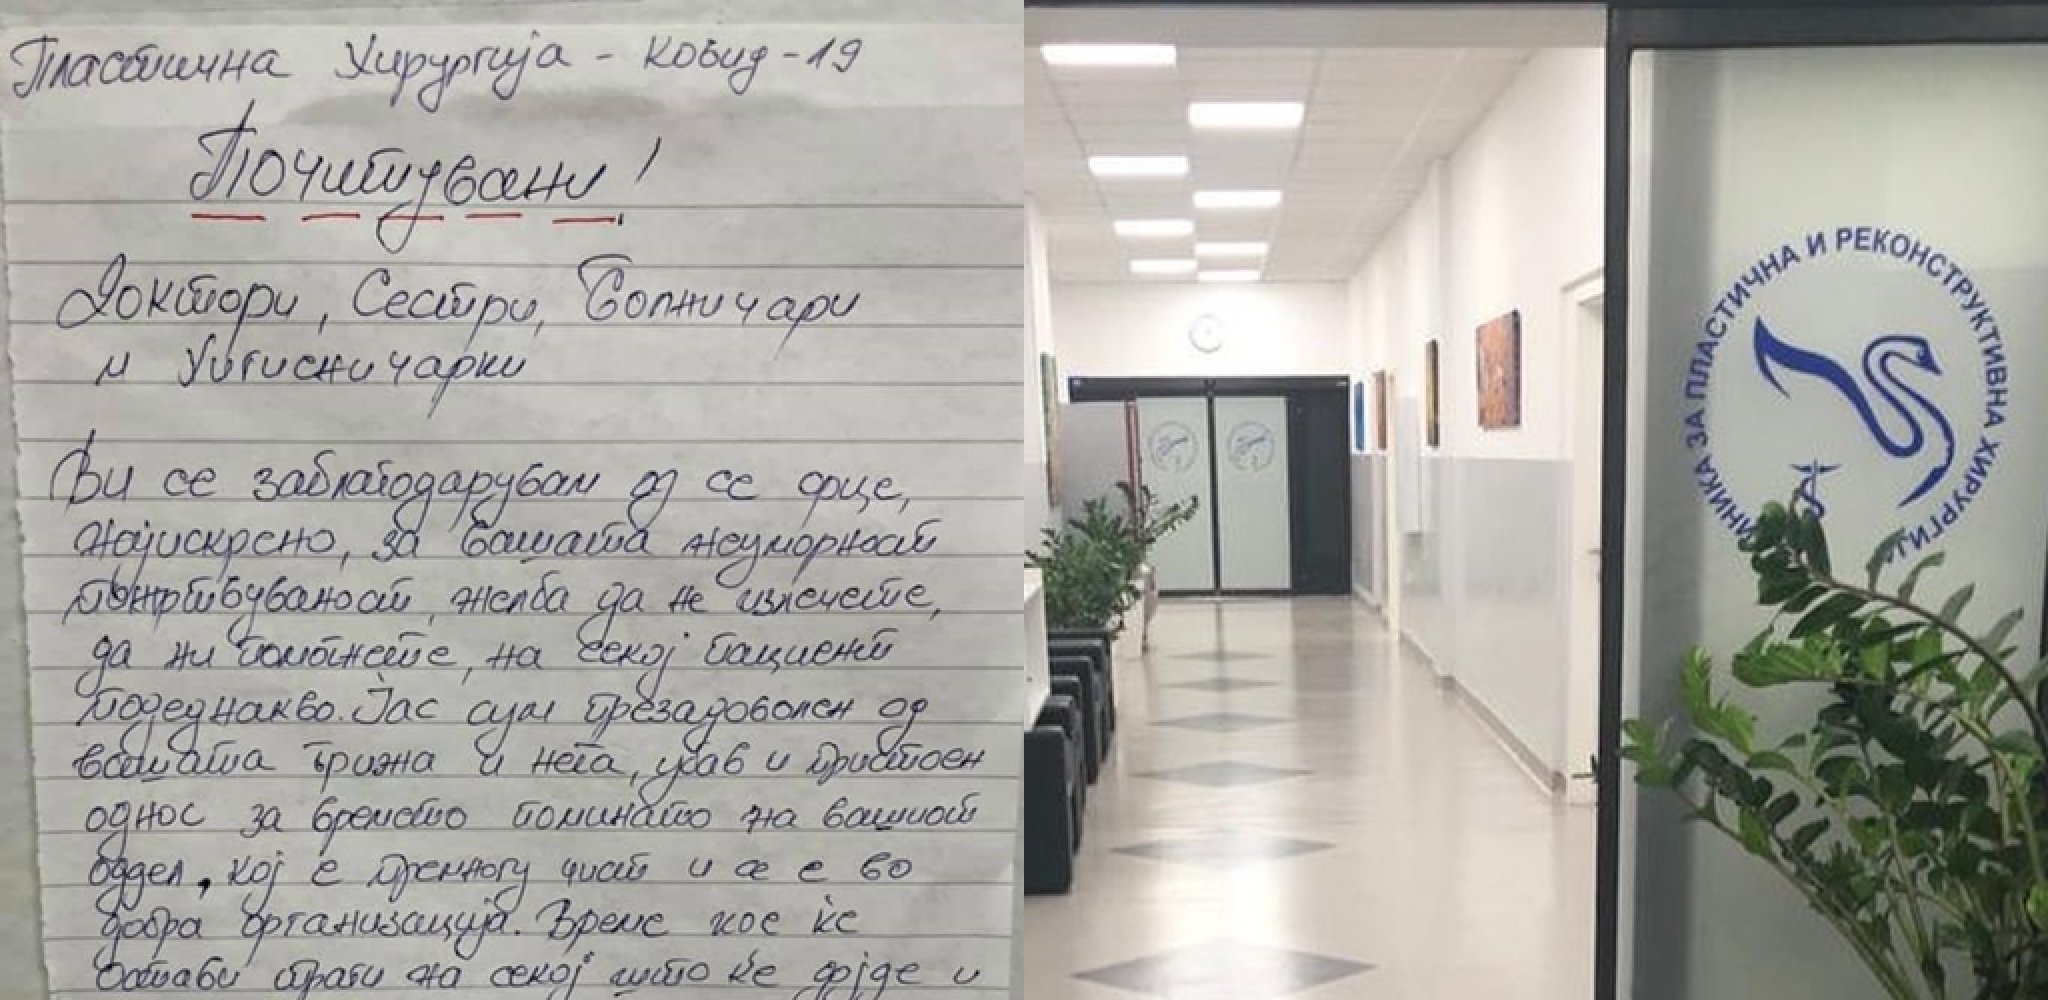 Пластична Хирургија - Ковид - 19
Почитувани!
Доктори, Сестри, Болничари
и Хигиеничарки
Ви се заблагодарувам од се срце,
најискрено, за вашата неуморност
пожртвуваност, желба да не излечете,
да ни помогнете, на секој пациент
подеднакво. Јас сум презадоволен од
вашата грижа и нега, убав и пристоен
однос за времето поминато на вашиот
оддел, кој е премногу чист и се е во
добра организација. Време кое ќе
остави траги на секој што ќе дојде и
ИНИКА ЗА ПЛАСТИЧНА И РЕКОНСТРУКТИВНА ХИРУРГИЈА